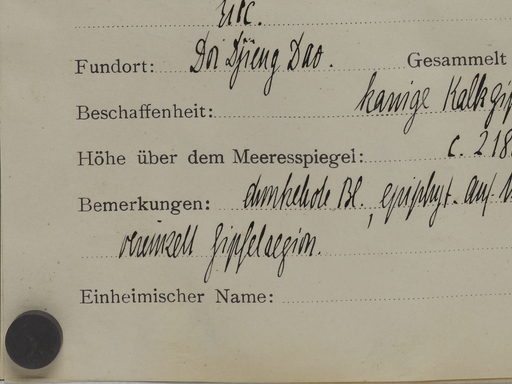 etc.
Fundort: Doi Djieng Dao. Gesammelt
Beschaffenheit: kantige Kalkgip
Höhe über dem Meeresspiegel: c. 218
Bemerkungen: dunkelrote Bl., epiphyt. auf
vereinzelt Gipfelregion.
Einheimischer Name: